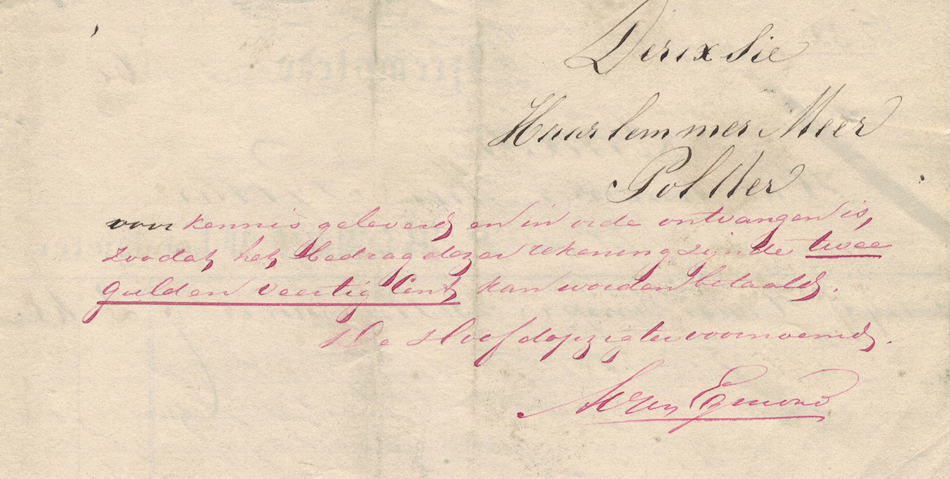 Direxsie
Haarlemmer Meer
Polder
voor kennis geleverd en in orde ontvangen is,
zoodat het bedrag dezer rekening zijnde twee
gulden veertig Cent kan worden betaald.
De Hoofdopzigter voornoemd,
van Egmond